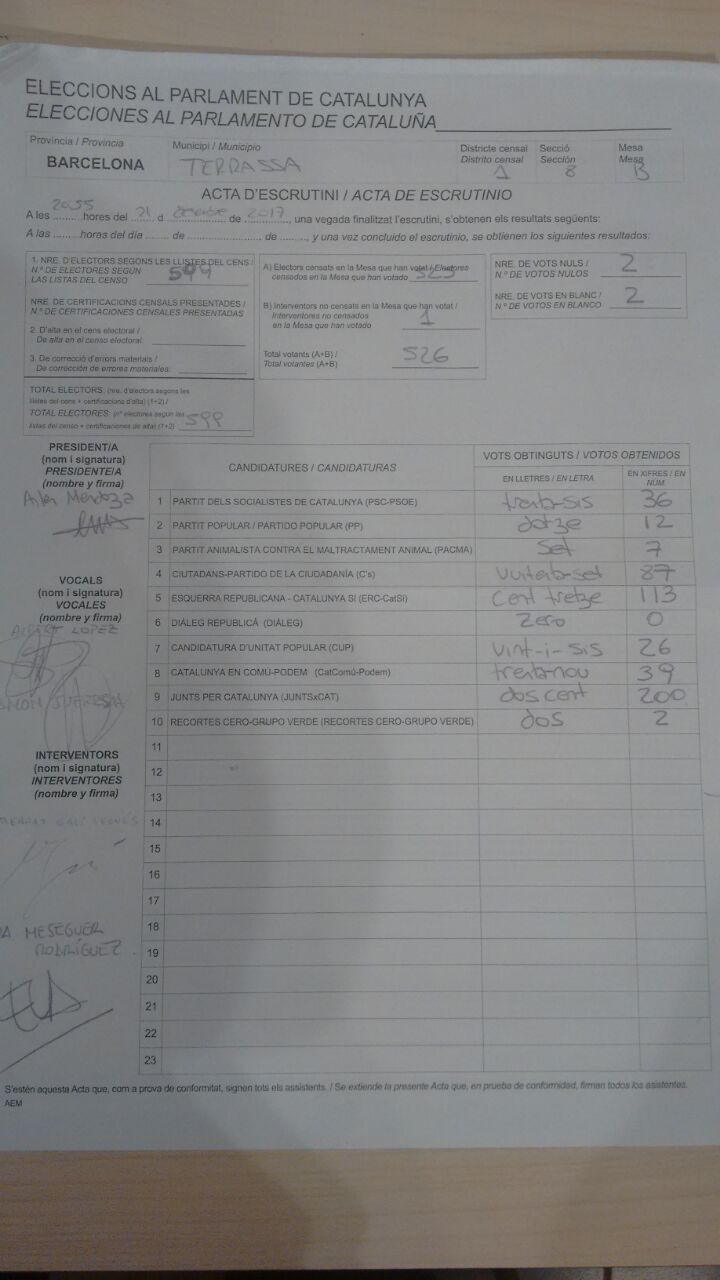 ELECCIONS AL PARLAMENT DE CATALUNYA
ELECCIONES AL PARLAMENTO DE CATALUÑA
Provincia / Provincia
BARCELONA
Municipi / Municipio
TERRASSA
Districte censal
Distrito censal
1
Secció
Sección
8
Mesa
Mesa
B
ACTA D'ESCRUTINI / ACTA DE ESCRUTINIO
A les 2055 hores del 21 d de 2017, una vegada finalitzat l'escrutini, s'obtenen els resultats següents:
A las ........ horas del día ....... de ...................... de ......., y una vez concluido el escrutinio, se obtienen los siguientes resultados:
1. NRE. D'ELECTORS SEGONS LES LLISTES DEL CENS /
N.º DE ELECTORES SEGÚN
LAS LISTAS DEL CENSO
NRE. DE CERTIFICACIONS CENSALS PRESENTADES /
N.º DE CERTIFICACIONES CENSALES PRESENTADAS
2. D'alta en el cens electoral /
De alta en el censo electoral:
3. De correcció d'errors materials /
De corrección de errores materiales:
TOTAL ELECTORS: (nre. d'electors segons les
llistes del cens + certificacions d'alta) (1+2) /
TOTAL ELECTORES: (nº electores según las
listas del censo + certificaciones de alta) (1+2) 599
A) Electors censats en la Mesa que han votat / Electores
censados en la Mesa que han votado 525
B) Interventors no censats en la Mesa que han votat /
Interventores no censados
en la Mesa que han votado
1
Total votants (A+B) /
Total votantes (A+B)
526
NRE. DE VOTS NULS /
N.º DE VOTOS NULOS
2
NRE. DE VOTS EN BLANC /
N.º DE VOTOS EN BLANCO
2
PRESIDENT/A
(nom i signatura)
PRESIDENTE/A
(nombre y firma)
Mendoza
VOCALS
(nom i signatura)
VOCALES
(nombre y firma)
ALBERT LOPEZ
INTERVENTORS
(nom i signatura)
INTERVENTORES
(nombre y firma)
MESEGUER
RODRÍGUEZ
CANDIDATURES / CANDIDATURAS
VOTS OBTINGUTS / VOTOS OBTENIDOS
EN LLETRES / EN LETRA
EN XIFRES / EN NÚM.
1 PARTIT DELS SOCIALISTES DE CATALUNYA (PSC-PSOE) trenta-sis 36
2 PARTIT POPULAR / PARTIDO POPULAR (PP) dotze 12
3 PARTIT ANIMALISTA CONTRA EL MALTRACTAMENT ANIMAL (PACMA) set 7
4 CIUTADANS-PARTIDO DE LA CIUDADANÍA (C's) vuitanta-set 87
5 ESQUERRA REPUBLICANA - CATALUNYA SÍ (ERC-CatSí) cent tretze 113
6 DIÀLEG REPUBLICÀ (DIÀLEG) zero 0
7 CANDIDATURA D'UNITAT POPULAR (CUP) vint-i-sis 26
8 CATALUNYA EN COMÚ-PODEM (CatComú-Podem) trenta-nou 39
9 JUNTS PER CATALUNYA (JUNTSxCAT) dos cent 200
10 RECORTES CERO-GRUPO VERDE (RECORTES CERO-GRUPO VERDE) dos 2
11
12
13
14
15
16
17
18
19
20
21
22
23
S'estén aquesta Acta que, com a prova de conformitat, signen tots els assistents. / Se extiende la presente Acta que, en prueba de conformidad, firman todos los asistentes.
AEM